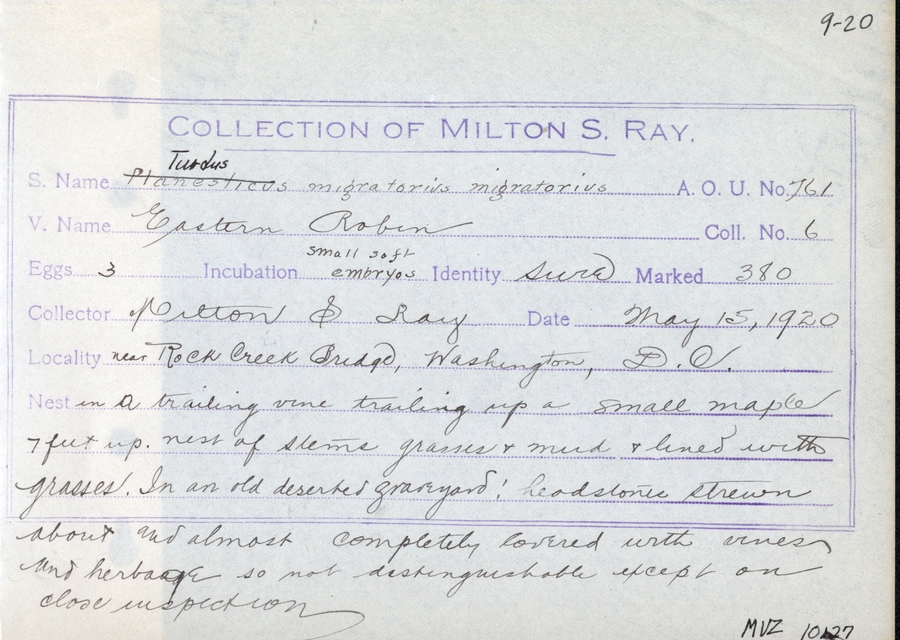 9-20
COLLECTION OF MILTON S. RAY.
Turdus
S. Name Planesticus migratorius migratorius A. O. U. No. 761
V. Name Eastern Robin Coll. No. 6
small soft
Eggs 3 Incubation embryos Identity Sure Marked 380
Collector Milton S Ray Date May 15, 1920
Locality near Rock Creek Bridge, Washington, D.C.
Nest in a trailing vine trailing up a small maple
7 feet up. nest of stems grasses & mud & lined with
grasses. In an old deserted graveyard! headstones strewn
about and almost completely covered with vines
and herbage so not distinguishable except on
close inspection
MVZ